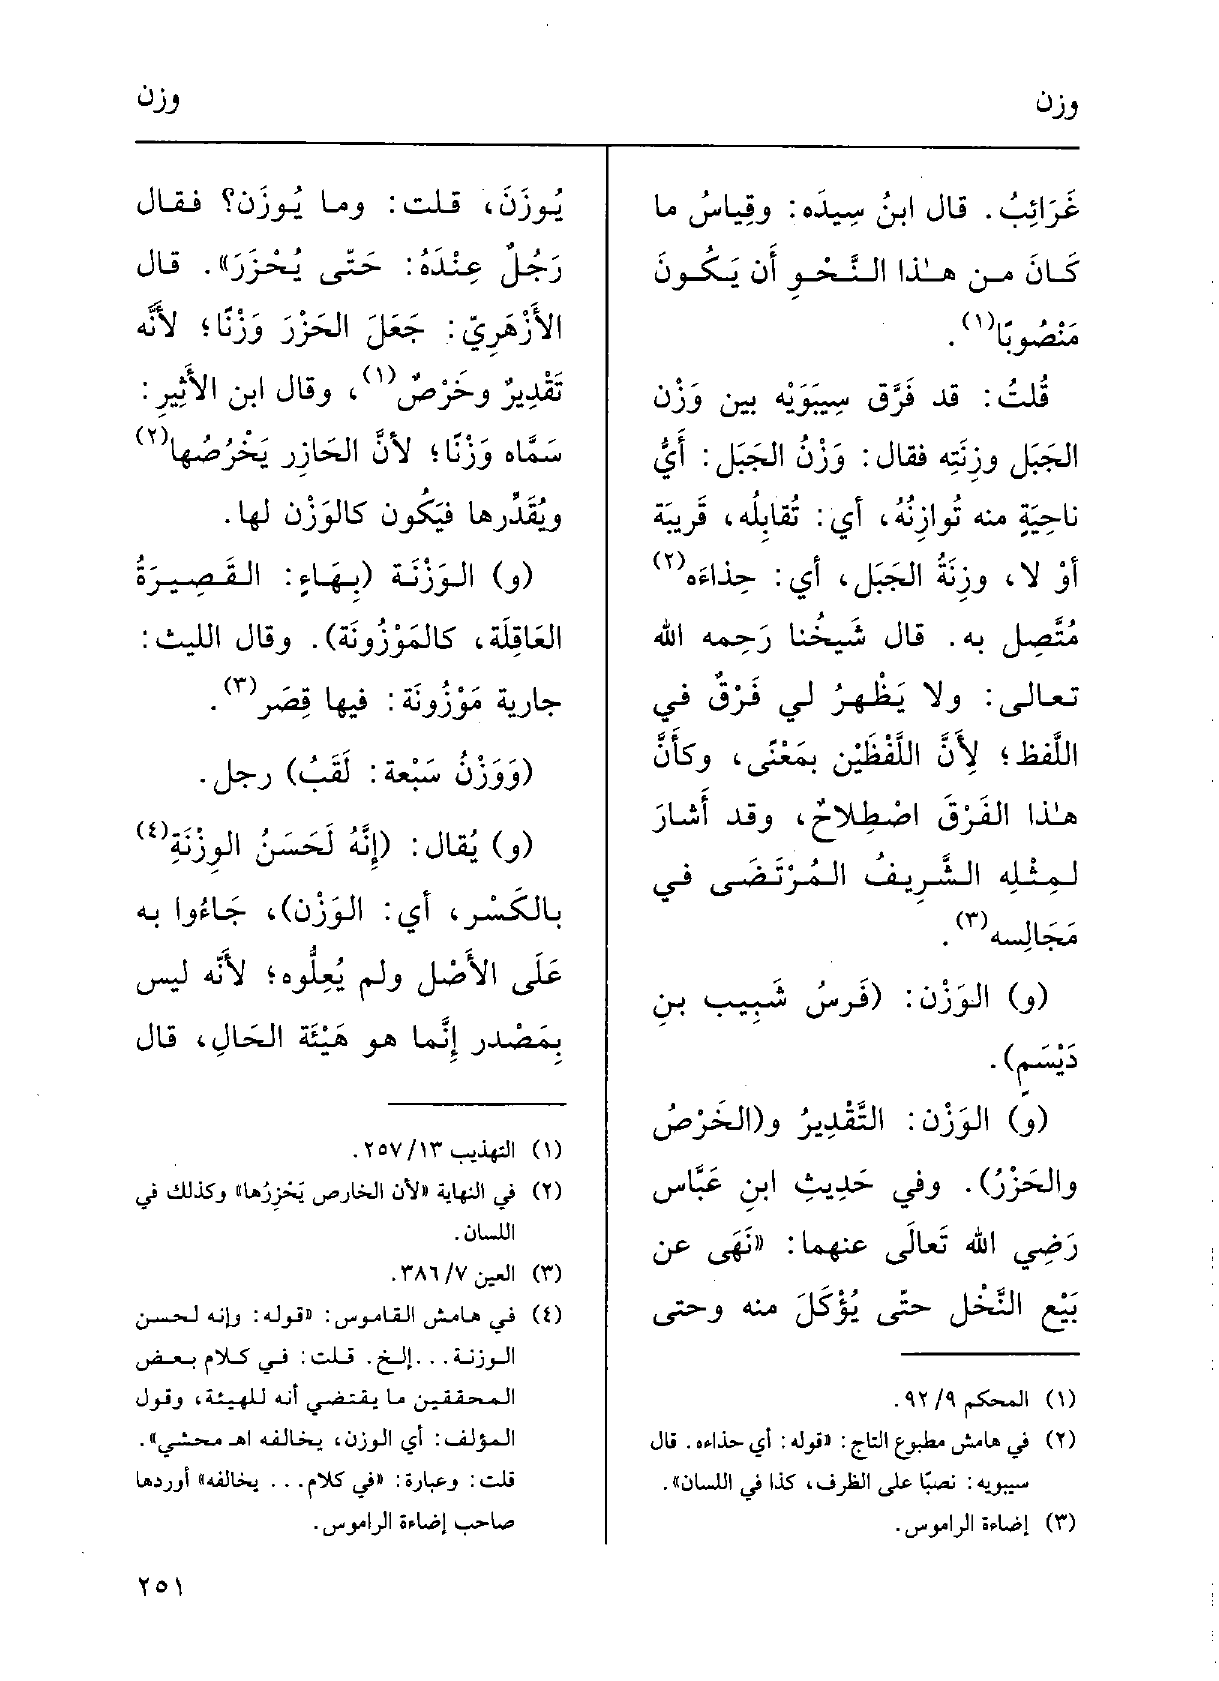 وزن
وزن
غَرَائِبُ. قال ابنُ سِيدَه: وقِياسُ ما
كَـانَ مـن هـٰذا الـنَّـحْـوِ أَن يَـكُـونَ
مَنْصُوبًا(١).
قُلتُ: قد فَرَّق سِيبَوَيْه بين وَزْن
الجَبَل وزِنَتِه فقال: وَزْنُ الجَبَل: أَيُّ
ناحِيَةٍ منه تُوازِنُهُ، أي: تُقابِلُه، قَرِيبَة
أَوْ لا، وزِنَةُ الجَبَل، أي: حِذاءَه(٢)
مُتَّصِل به. قال شَيخُنا رَحِمه الله
تعالى: ولا يَظْهرُ لي فَرْقٌ في
اللَّفظ؛ لِأَنَّ اللَّفْظَيْن بمَعْنًى، وكأَنَّ
هٰذا الفَرْقَ اصْطِلاحٌ، وقد أَشارَ
لـمِثْـلِه الـشَّـرِيـفُ الـمُـرْتَـضَـى فـي
مَجَالِسه(٣).
(و) الوَزْن: (فَرسُ شَبِيب بنِ
دَيْسَمٍ).
(و) الوَزْن: التَّقْدِيرُ و(الخَرْصُ
والحَزْرُ). وفي حَدِيثِ ابنِ عَبَّاس
رَضِي الله تَعالَى عنهما: «نَهَى عن
بَيْع النَّخْل حتّى يُؤْكَلَ منه وحتى
(١) المحكم ٩/ ٩٢.
(٢) في هامش مطبوع التاج: «قوله: أي حذاءه. قال
سيبويه: نصبًا على الظرف، كذا في اللسان».
(٣) إضاءة الراموس.
يُوزَنَ، قلت: وما يُوزَن؟ فقال
رَجُلٌ عِنْدَهُ: حَتّى يُحْزَرَ». قال
الأَزْهَرِيّ: جَعَلَ الحَزْرَ وَزْنًا؛ لأَنَّه
تَقْدِيرٌ وخَرْصٌ(١)، وقال ابن الأَثِيرِ:
سَمَّاه وَزْنًا؛ لأنَّ الحَازِر يَخْرُصُها(٢)
ويُقَدِّرها فيَكُون كالوَزْن لها.
(و) الـوَزْنَـة (بِـهَـاءٍ: الـقَـصِـيـرَةُ
العَاقِلَة، كالمَوْزُونَة). وقال الليث:
جارية مَوْزُونَة: فيها قِصَر(٣).
(وَوَزْنُ سَبْعة: لَقَبُ) رجل.
(و) يُقال: (إِنَّهُ لَحَسَنُ الوِزْنَةِ(٤)
بالكَسْر، أي: الوَزْن)، جَاءُوا به
عَلَى الأَصْل ولم يُعِلُّوه؛ لأَنّه ليس
بِمَصْدر إِنَّما هو هَيْئَة الحَالِ، قال
(١) التهذيب ١٣/ ٢٥٧.
(٢) في النهاية «لأن الخارص يَحْزِرُها» وكذلك في
اللسان.
(٣) العين ٧/ ٣٨٦.
(٤) في هامش القاموس: «قوله: وإنه لحسن
الوزنة...إلخ. قلت: في كلام بعض
المحققين ما يقتضي أنه للهيئة، وقول
المؤلف: أي الوزن، يخالفه اهـ محشي».
قلت: وعبارة: «في كلام... يخالفه» أوردها
صاحب إضاءة الراموس.
٢٥١